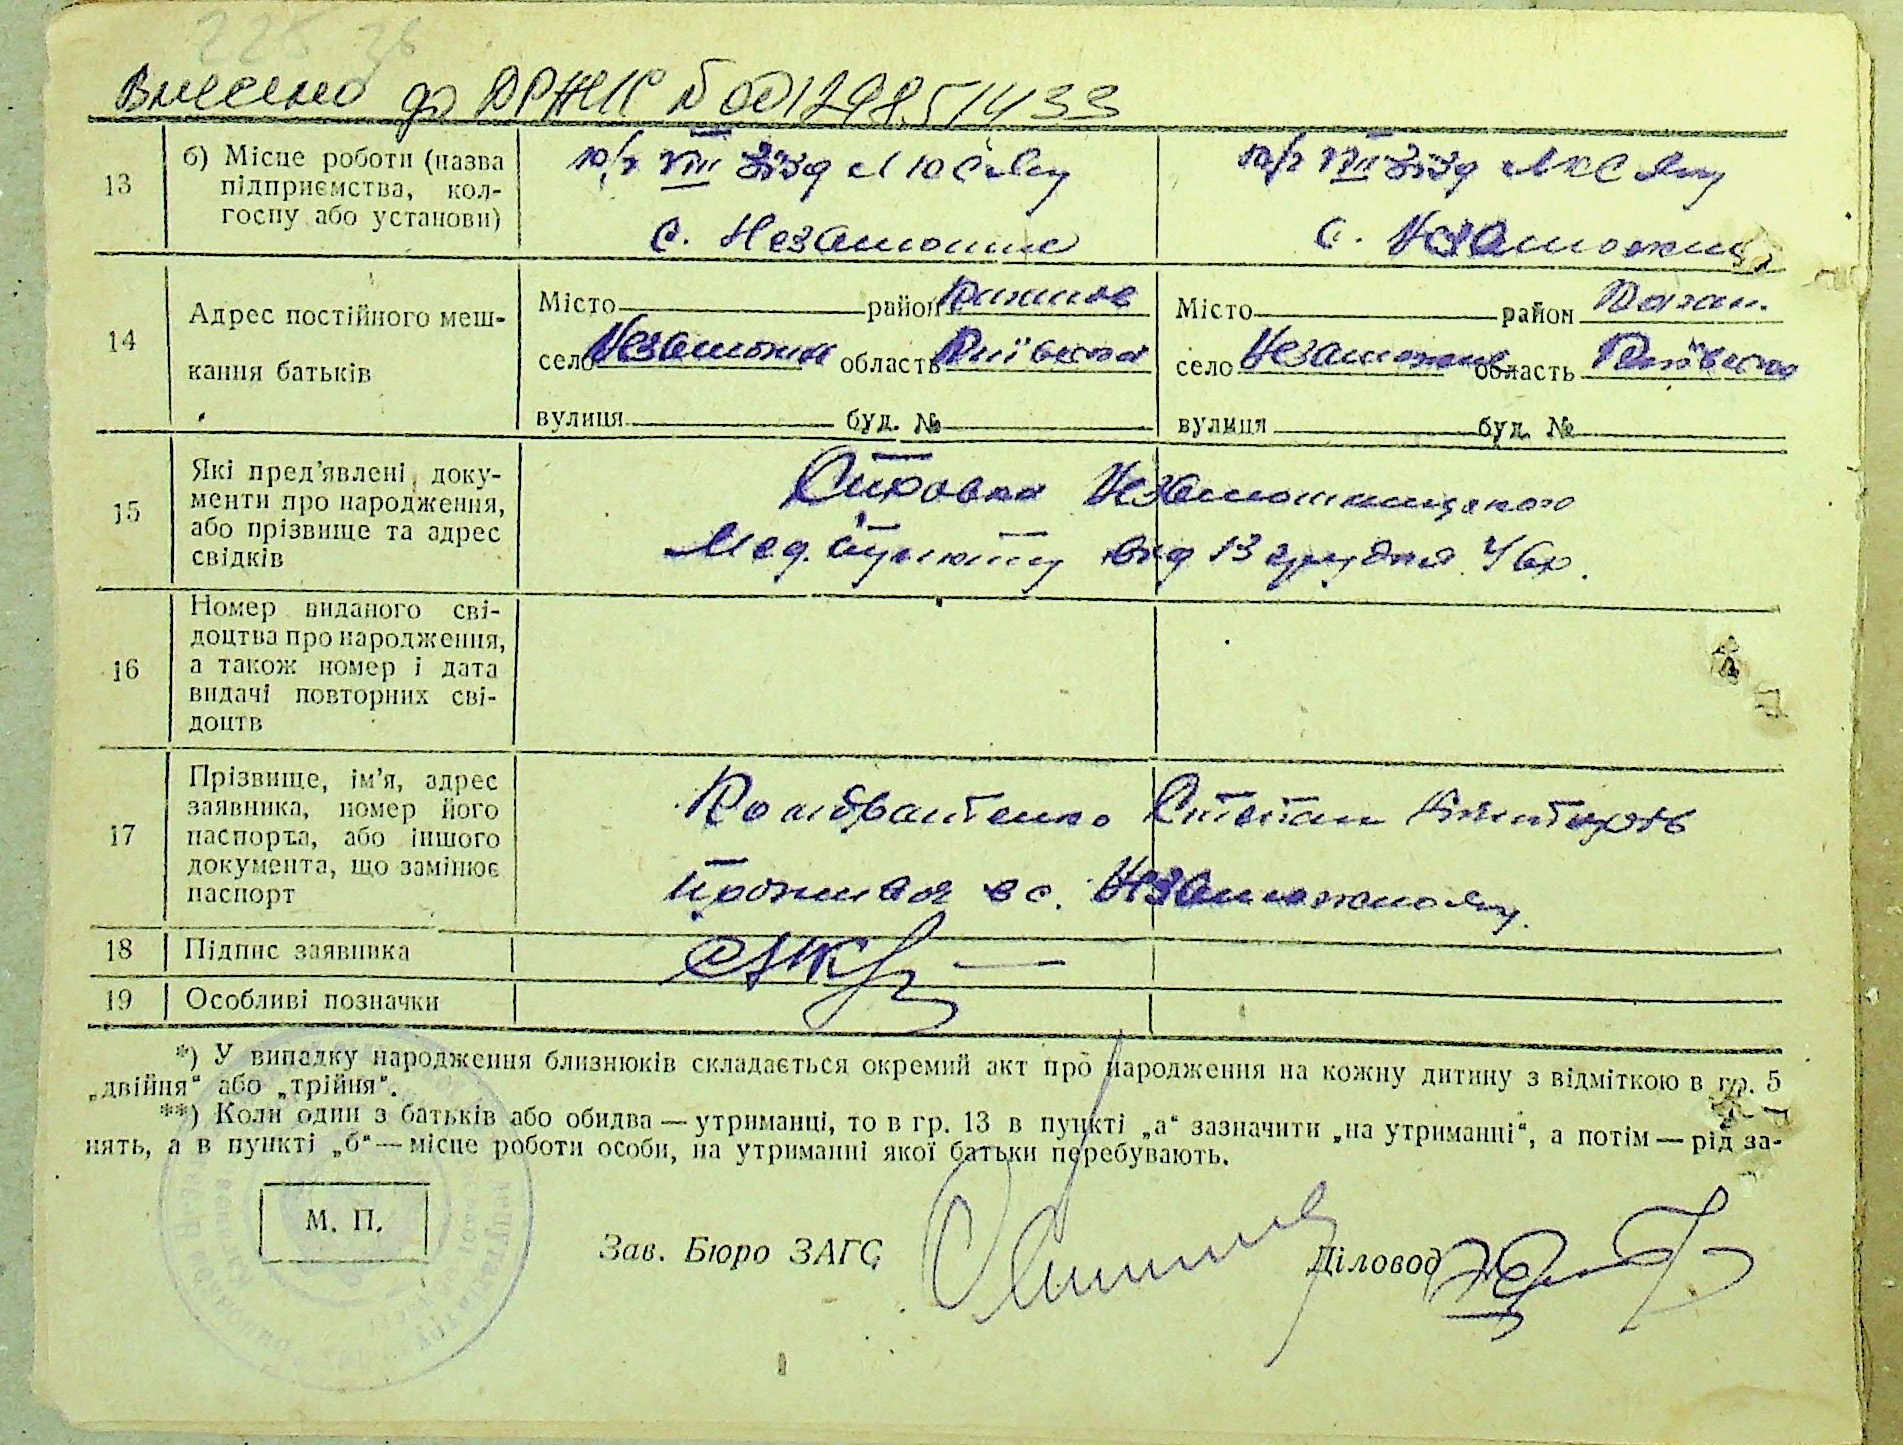 225 36
Внесено до ДРАЦС № 00129851433
13
б) Місце роботи (назва
підприємства, кол-
госпу або установи)
к/г VIII зїзд ЛКСМУ
с. Незаможне
к/г VIII зїзд ЛКСМУ
с. Незаможне
14
Адрес постійного меш-
кання батьків
Місто район
село Незаможне область Київська
вулиця буд. №
Місто район
село Незаможне область Київська
вулиця буд. №
15
Які пред'явлені доку-
менти про народження,
або прізвище та адрес
свідків
Справка Незаможницького
Мед. пункту від 13 грудня 46р.
16
Номер виданого сві-
доцтва про народження,
а також номер і дата
видачі повторних сві-
доцтв
17
Прізвище, ім'я, адрес
заявника, номер його
паспорта, або іншого
документа, що замінює
паспорт
Кондратенко Степан
Проживає в с. Незаможному.
18
Підпис заявника
19
Особливі позначки
*) У випадку народження близнюків складається окремий акт про народження на кожну дитину з відміткою в гр. 5
„двійня“ або „трійня“.
**) Коли один з батьків або обидва — утриманці, то в гр. 13 в пункті „а“ зазначити „на утриманці“, а потім — рід за-
нять, а в пункті „б“ — місце роботи особи, на утриманні якої батьки перебувають.
М. П.
Зав. Бюро ЗАГС
Діловод